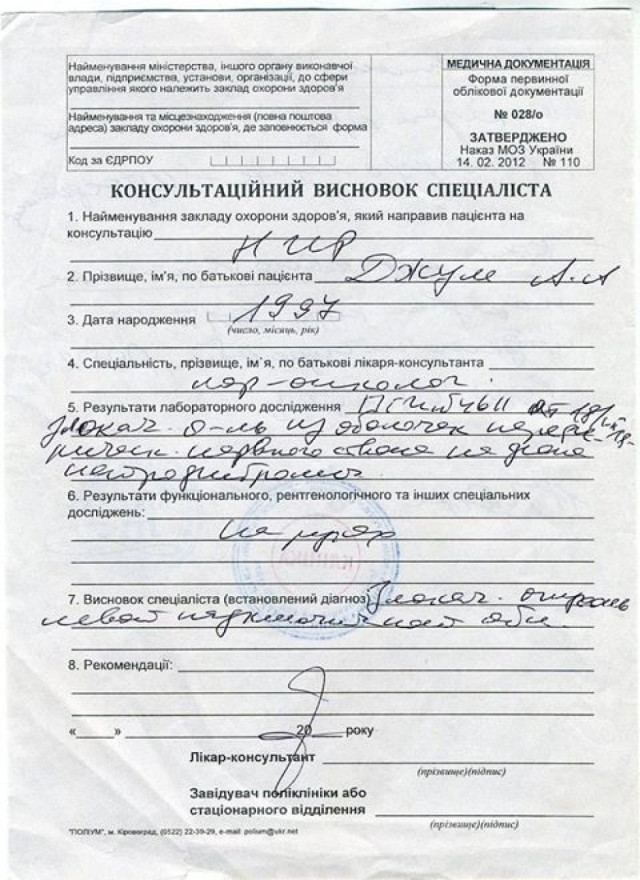 Найменування міністерства, іншого органу виконавчої
влади, підприємства, установи, організації, до сфери
управління якого належить заклад охорони здоров'я
Найменування та місцезнаходження (повна поштова
адреса) закладу охорони здоров'я, де заповнюється форма
Код за ЄДРПОУ
МЕДИЧНА ДОКУМЕНТАЦІЯ
Форма первинної
облікової документації
№ 028/о
ЗАТВЕРДЖЕНО
Наказ МОЗ України
14. 02. 2012 № 110
КОНСУЛЬТАЦІЙНИЙ ВИСНОВОК СПЕЦІАЛІСТА
1. Найменування закладу охорони здоров'я, який направив пацієнта на
консультацію
НИР
2. Прізвище, ім'я, по батькові пацієнта Джум А.А
3. Дата народження 1997
(число, місяць, рік)
4. Спеціальність, прізвище, ім`я, по батькові лікаря-консультанта
лор-онколог
5. Результати лабораторного дослідження
злокач. о-ль из оболочек перифе-
рическ. нервного ствола на фоне
нейрофиброма
6. Результати функціонального, рентгенологічного та інших спеціальних
досліджень:
на
7. Висновок спеціаліста (встановлений діагноз) Злокач. опухоль
левой надключичной обл.
8. Рекомендації:
«____» 20 року
Лікар-консультант
(прізвище)(підпис)
Завідувач поліклініки або
стаціонарного відділення
(прізвище)(підпис)
"ПОЛІУМ", м. Кіровоград, (0522) 22-39-29, e-mail: polium@ukr.net